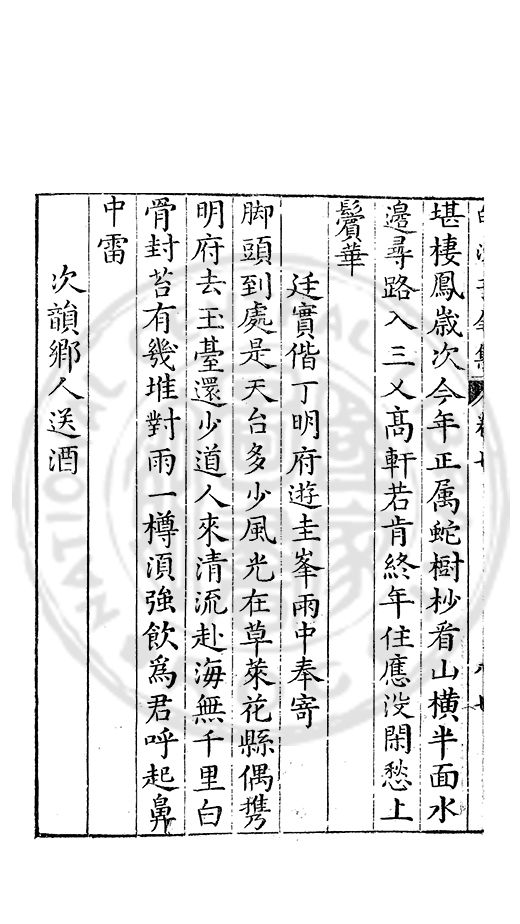 堪棲鳳歲次今年正属蛇樹杪看山橫半面水
邉尋路入三乂高軒若肯終年住應没閑愁上
鬢華
廷實偕丁明府遊圭峯雨中奉寄
脚頭到處是天台多少風光在草萊花縣偶携
明府去玉臺還少道人來清流赴海無千里白
骨封苔有幾堆對雨一樽湏強飲爲君呼起鼻
中雷
次韻鄉人送酒